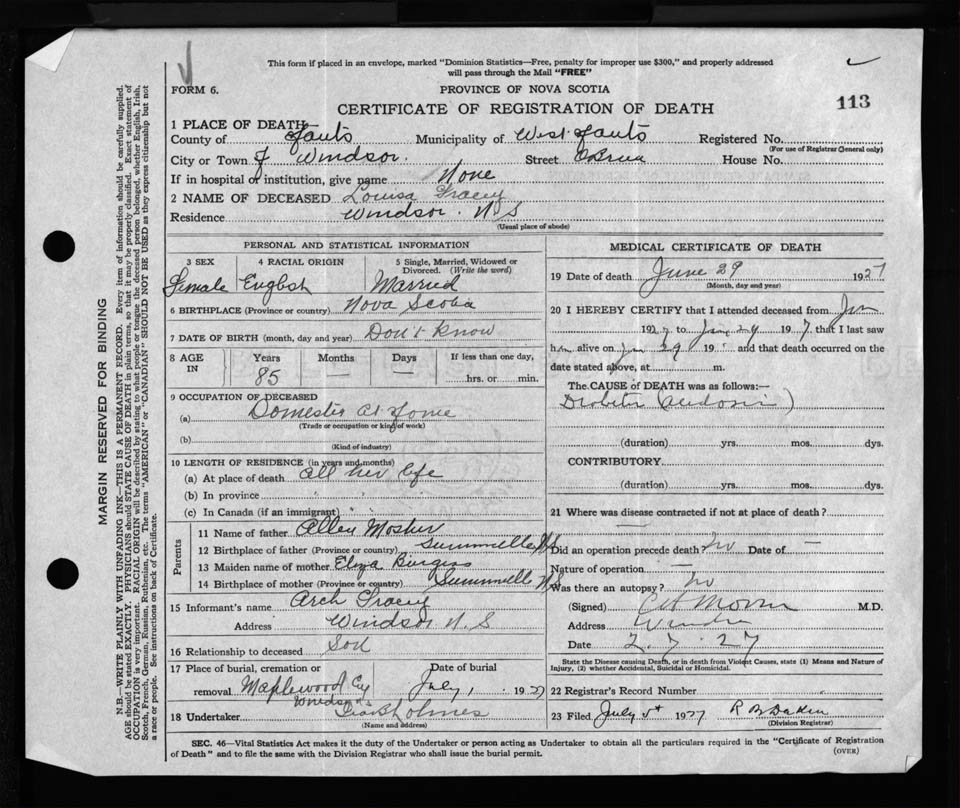 This form if placed in an envelope, marked "Dominion Statistics—Free, penalty for improper use $300," and properly addressed
will pass through the Mail "FREE"
FORM 6.
PROVINCE OF NOVA SCOTIA
CERTIFICATE OF REGISTRATION OF DEATH
113
1 PLACE OF DEATH—
County of Hants Municipality of West Hants Registered No.
(For use of Registrar General only)
City or Town of Windsor. Street O'Brien House No.
If in hospital or institution, give name None
2 NAME OF DECEASED Louisa Tracey
Residence Windsor. N S
(Usual place of abode)
PERSONAL AND STATISTICAL INFORMATION
3 SEX 4 RACIAL ORIGIN 5 Single, Married, Widowed or
Divorced. (Write the word)
Female English Married
6 BIRTHPLACE (Province or country) Nova Scotia
7 DATE OF BIRTH (month, day and year) Don't Know
8 AGE IN Years Months Days If less than one day,
85 — — hrs. or min.
9 OCCUPATION OF DECEASED
(a) Domestic at Home
(Trade or occupation or kind of work)
(b)
(Kind of industry)
10 LENGTH OF RESIDENCE (in years and months)
(a) At place of death all her life
(b) In province " "
(c) In Canada (if an immigrant) " "
Parents
11 Name of father Allen Mosher
12 Birthplace of father (Province or country) Summerville NS
13 Maiden name of mother Eliza Burgess
14 Birthplace of mother (Province or country) Summerville NS
15 Informant's name Arch Tracey
Address Windsor N. S
16 Relationship to deceased Son
17 Place of burial, cremation or Date of burial
removal Maplewood Cy July 1 1927
Windsor
18 Undertaker Holmes
(Name and address)
MEDICAL CERTIFICATE OF DEATH
19 Date of death June 29 1927
(Month, day and year)
20 I HEREBY CERTIFY that I attended deceased from Jun
1927 to Jun 29 1927, that I last saw
her alive on Jun 29 192 and that death occurred on the
date stated above, at m.
The CAUSE of DEATH was as follows:—
Diabetes
(duration) yrs. mos. dys.
CONTRIBUTORY
(duration) yrs. mos. dys.
21 Where was disease contracted if not at place of death?
—
Did an operation precede death? No Date of —
Nature of operation —
Was there an autopsy? No
(Signed) M.D.
Address Windsor
Date 2. 7. 27
State the Disease causing Death, or in death from Violent Causes, state (1) Means and Nature of
Injury, (2) whether Accidental, Suicidal or Homicidal.
22 Registrar's Record Number
23 Filed July 5th 1927 R B Dakin
(Division Registrar)
SEC. 46—Vital Statistics Act makes it the duty of the Undertaker or person acting as Undertaker to obtain all the particulars required in the "Certificate of Registration
of Death" and to file the same with the Division Registrar who shall issue the burial permit. (OVER)
MARGIN RESERVED FOR BINDING
N.B.—WRITE PLAINLY WITH UNFADING INK—THIS IS A PERMANENT RECORD. Every item of information should be carefully supplied.
AGE should be stated EXACTLY. PHYSICIANS should STATE CAUSE OF DEATH in plain terms, so that it may be properly classified. Exact statement of
OCCUPATION is very important. RACIAL ORIGIN will be described by stating to what people or tongue the deceased person belonged, whether English, Irish,
Scotch, French, German, Russian, Ruthenian, etc. The terms "AMERICAN" or "CANADIAN" SHOULD NOT BE USED as they express citizenship but not
a race or people. See instructions on back of Certificate.